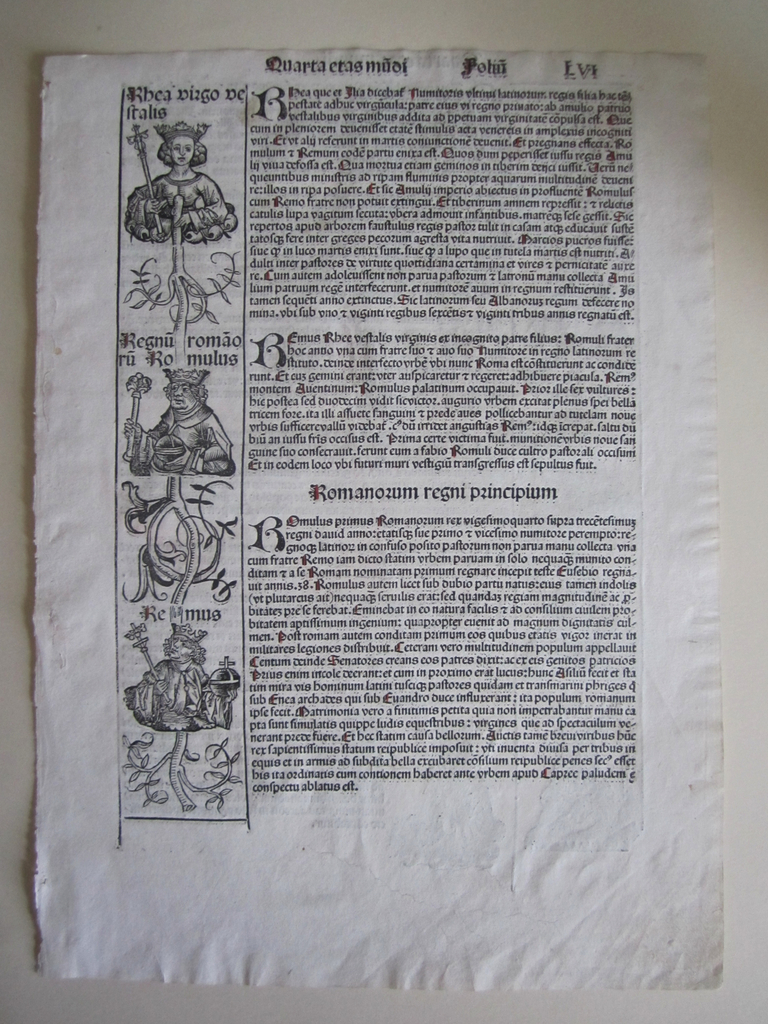 Quarta etas mũdi Foliũ LVI
Rhea virgo ve
stalis
Regnũ romão
rũ Romulus
Remus
Rhea que et Ilia dicebat Numitoris vltimi latinorum regis filia hac tẽ
pestate adhuc virgũcula: patre eius vi regno priuato: ab amulio patruo
vestalibus virginibus addita ad ppetuam virginitatẽ cõpulsa est. Que
cum in pleniorem deuenisset etatẽ stimulis acta venereis in amplexus incogniti
viri. Et vt alij referunt in martis coniunctionẽ deuenit. Et pregnans effecta. Ro
mulum ⁊ Remum codẽ partu enixa est. Quos dum peperisset iussu regis Amu
lij viua defossa est. Qua mortua etiam geminos in tiberim deijci iussit. Verũ ne
queuntibus ministris ad ripam fluminis propter aquarum multitudinẽ deueni
re: illos in ripa posuere. Et sic Amulij imperio abiectus in profluentẽ Romulus
cum Remo fratre non potuit extingui. Et tiberinum annem repressit: ⁊ relictis
catulis lupa vagitum secuta: vbera admouit infantibus. matreqꝫ sese gessit. Sic
repertos apud arborem faustulus regis pastor tulit in casam atqꝫ educauit
tatosqꝫ fere inter greges pecorum agresta vita nutriuit. Marcios pueros fuisse:
siue qꝫ in luco martis enixi sunt. siue qꝫ a lupo que in tutela martis est nutriti. A-
dulti inter pastores de virtute quottidiana certamina et vires ⁊ pernicitatẽ auxe
re. Cum autem adoleuissent non parua pastorum ⁊ latronũ manu collecta Amu
lium patruum regẽ interfecerunt. et numitorẽ auum in regnum restituerunt. Is
tamen sequẽti anno extinctus. Sic latinorum seu Albanorum regum defecere no
mina. vbi sub vno ⁊ viginti regibus sexcẽtis ⁊ viginti tribus annis regnatũ est.
Remus Rhee vestalis virginis ex incognito patre filius: Romuli frater
hoc anno vna cum fratre suo ⁊ auo suo Numitore in regno latinorum re
stituto. deinde interfecto vrbẽ vbi nunc Roma est cõstituerunt ac condide
runt. Et cuꝫ gemini erant: vter auspicaretur ⁊ regeret: adhibuere piacula. Rem⁹
montem Auentinum: Romulus palatinum occupauit. Prior ille sex vultures:
hic postea sed duodecim vidit sic victor. augurio vrbem excitat plenus spei bella
tricem fore. ita illi assuete sanguini ⁊ prede aues pollicebantur ad tutelam noue
vrbis sufficere vallũ videbat. dũ irridet angustias Rem⁹: idqꝫ increpat. saltu du
biũ an iussu fr̃is occisus est. Prima certe victima fuit. munitionẽ vrbis noue san
guine suo consecrauit. ferunt cum a fabio Romuli duce cultro pastorali occisum
Et in eodem loco vbi futuri muri vestigiũ transgressus est sepultus fuit.
Romanorum regni principium
Romulus primus Romanorum rex vigesimoquarto supra trecẽtesimuꝫ
regni dauid anno: etatisqꝫ sue primo ⁊ vicesimo numitore perempto: re-
gnoqꝫ latinoꝝ in confuso posito pastorum non parua manu collecta vna
cum fratre Remo iam dicto statim vrbem paruam in solo nequaqꝫ munito con-
ditam ⁊ a se Romam nominatam primum regnare incepit teste Eusebio regna-
uit annis. 38. Romulus autem licet sub dubio partu natus: eius tamen indolis
(vt plutarcus ait) nequaqꝫ seruilis erat: sed quandaꝫ regiam magnitudinẽ ac ꝓ-
bitatẽ pre se ferebat. Eminebat in eo natura facilis ⁊ ad consilium ciuilem pro-
bitatem aptissimum ingenium: quapropter euenit ad magnum dignitatis cul-
men. Post romam autem conditam primum eos quibus etatis vigor inerat in
militares legiones distribuit. Ceteram vero multitudinem populum appellauit
Centum deinde Senatores creans eos patres dixit: ac ex eis genitos patricios
Prius enim incole deerant: et cum in proximo erat lucus: hunc Asilũ fecit et sta
tim mira vis hominum latini tusciqꝫ pastores quidam et transmarini phriges q̃
sub Enea archades qui sub Euandro duce influxerant: ita populum romanum
ipse fecit. Matrimonia vero a finitimis petita quia non impetrabantur manu ca
pta sunt simulatis quippe ludis equestribus: virgines que ad spectaculum ve-
nerant prede fuere. Et hec statim causa bellorum. Auctis tamẽ breui viribus hũc
rex sapientissimus statum reipublice imposuit: vti iuuenta diuisa per tribus in
equis et in armis ad subdita bella excubaret cõsilium reipublice penes sec⁹ esset
his ita ordinatis cum contionem haberet ante vrbem apud Capree paludem e
conspectu ablatus est.